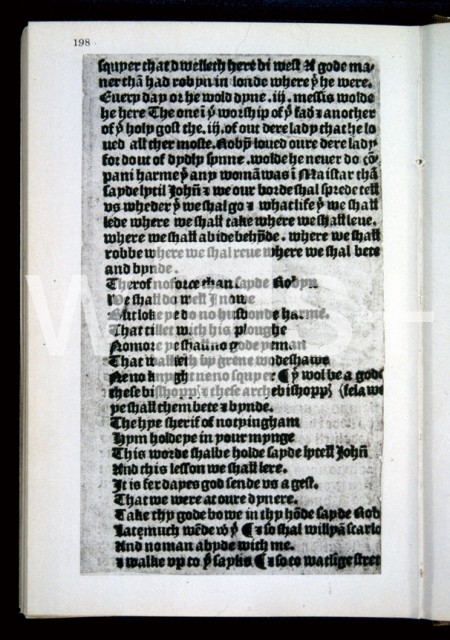 198
squyer that dwelleth here bi west A gode ma-
ner thā had robyn in londe where ẏ he were.
Euery day or he wold dyne .iij. messis wolde
he here The one ī ẏ worship of ẏ fad ⁊ another
of ẏ holy gost the .iij. of our dere lady that he lo
ued all ther moste. Robyn loued oure dere lady
for dout of dydly synne . wolde he neuer do cō-
pani harme ẏ any womā was ī Maistar thā
sayde lytil Johñ ⁊ we our borde shal sprede tell
vs wheder ẏ we shal go ⁊ what life ẏ we shall
lede where we shall take where we shall leue.
where we shall abide behȳde . where we shall
robbe where we shal reue where we shall bete
and bynde.
Therof no force than sayde Robyn
We shall do well ynowe
But loke ye do no husbonde harme.
That tillet with his ploughe
No more ye shall no gode yeman
That walketh by grene wodeshawe
Ne no knyght ne no squyer ¶ ẏ wol be a gode
these bisshoppꝭ ⁊ these archebisshoppꝭ felawe
ye shall them bete ⁊ bynde.
The hye sherif of notyingham
Hym holde ye in your mynge
This worde shalbe holde sayde lytell Johñ
And this lesson we shall lere.
It is fer dayes god sende vs a gest.
That we were at oure dynere.
Take thy gode bowe in thy hōde sayde Rob
Late much wēde ẇ ẏ ¶ ⁊ so shal willyā scarlo
And no man abyde with me.
⁊ walke vp to ẏ saylis ¶ ⁊ so to watlīge stret